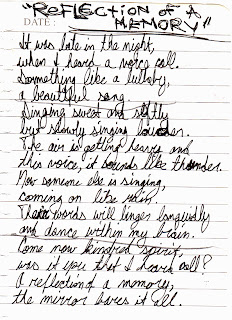 "REFLECTION OF A
MEMORY"
DATE:
It was late in the night,
when I heard a voice call.
Something like a lullaby,
a beautiful song
Singing sweet and softly
but slowly singing louder.
The air is getting heavy and
this voice, it sounds like thunder.
Now someone else is singing,
coming on like rain.
Their words will linger languidly
and dance within my brain.
Come now kindred spirit,
was it you that I heard call?
A reflection of a memory,
the mirror bares it all.